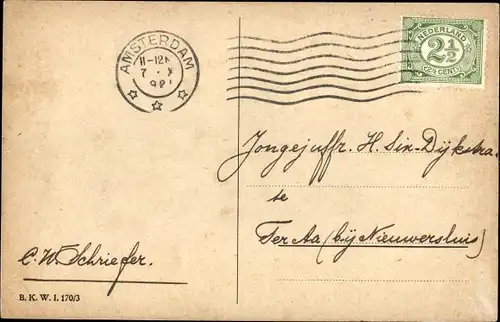 AMSTERDAM
11-12
NEDERLAND
2½
CENT
Jongejuffr. H. Six-Dijkstra.
te
Ter Aa (bij Nieuwersluis)
C. W. Schriefer.
B. K. W. I. 170/3